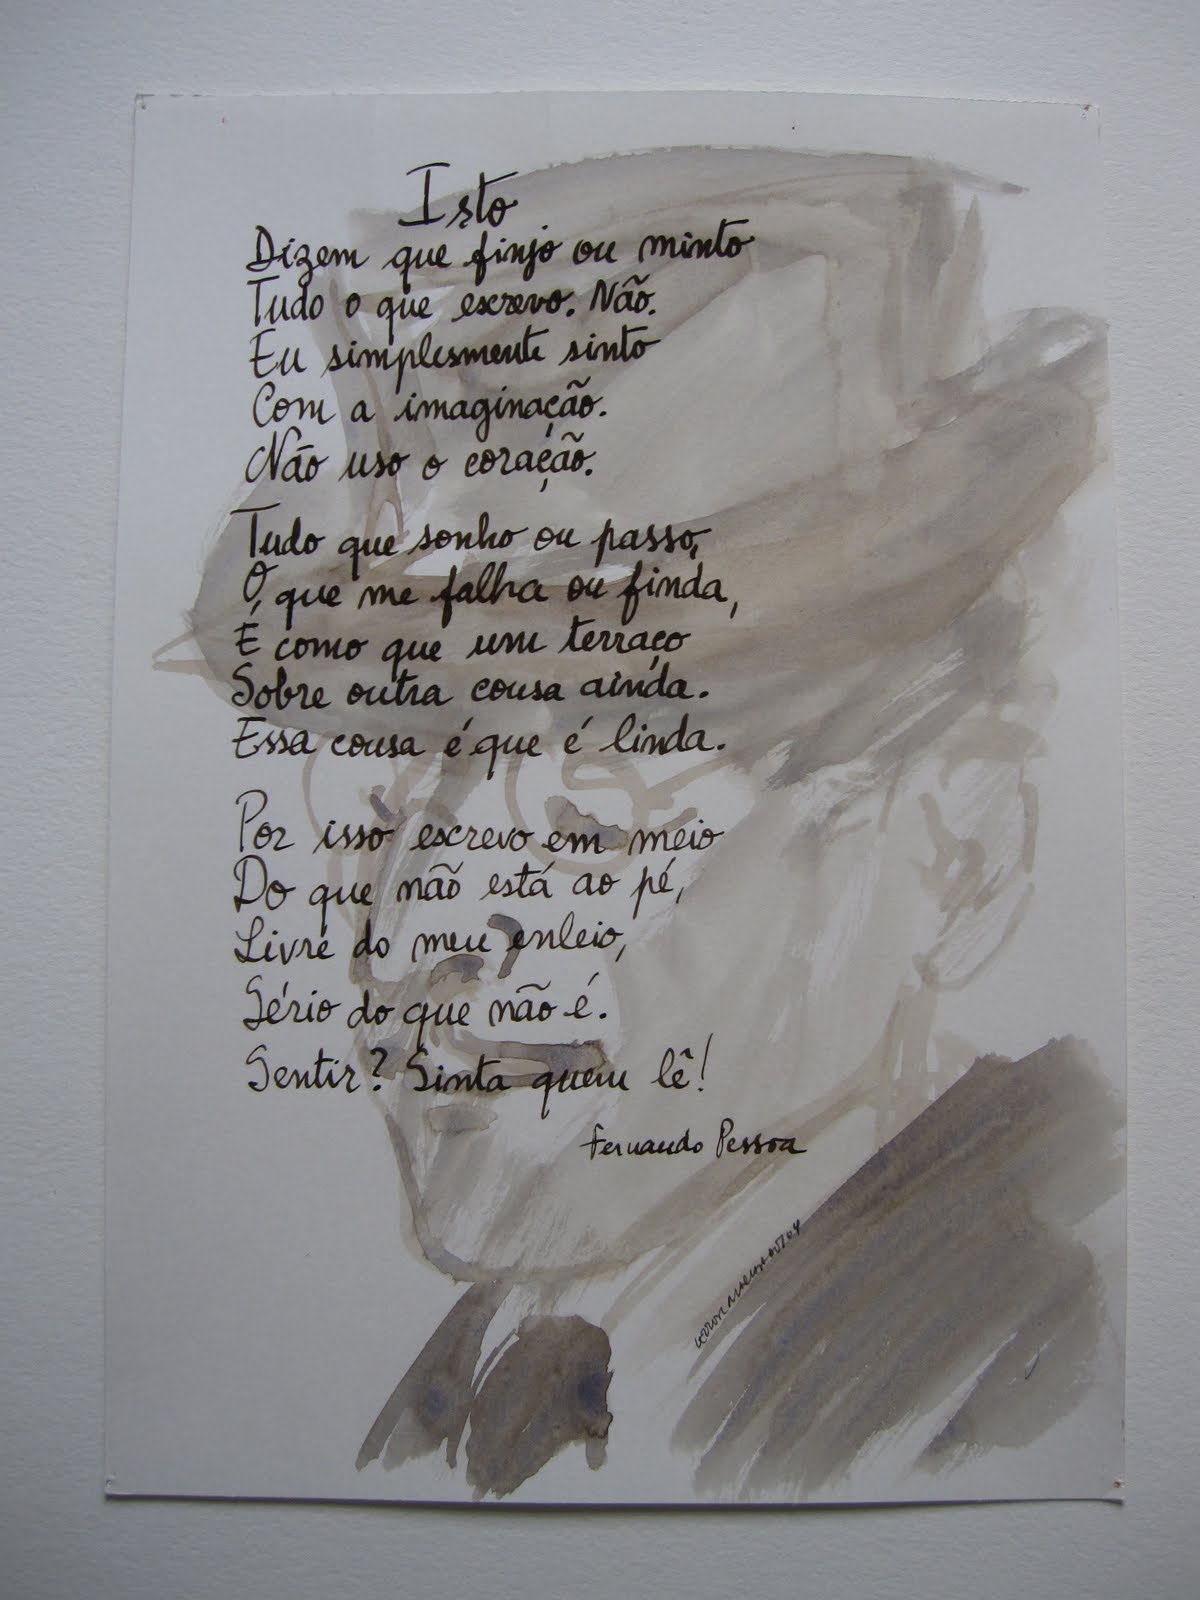 Isto
Dizem que finjo ou minto
Tudo o que escrevo. Não.
Eu simplesmente sinto
Com a imaginação.
Não uso o coração.
Tudo que sonho ou passo,
O que me falha ou finda,
É como que um terraço
Sobre outra cousa ainda.
Essa cousa é que é linda.
Por isso escrevo em meio
Do que não está ao pé,
Livre do meu enleio,
Sério do que não é.
Sentir? Sinta quem lê!
Fernando Pessoa